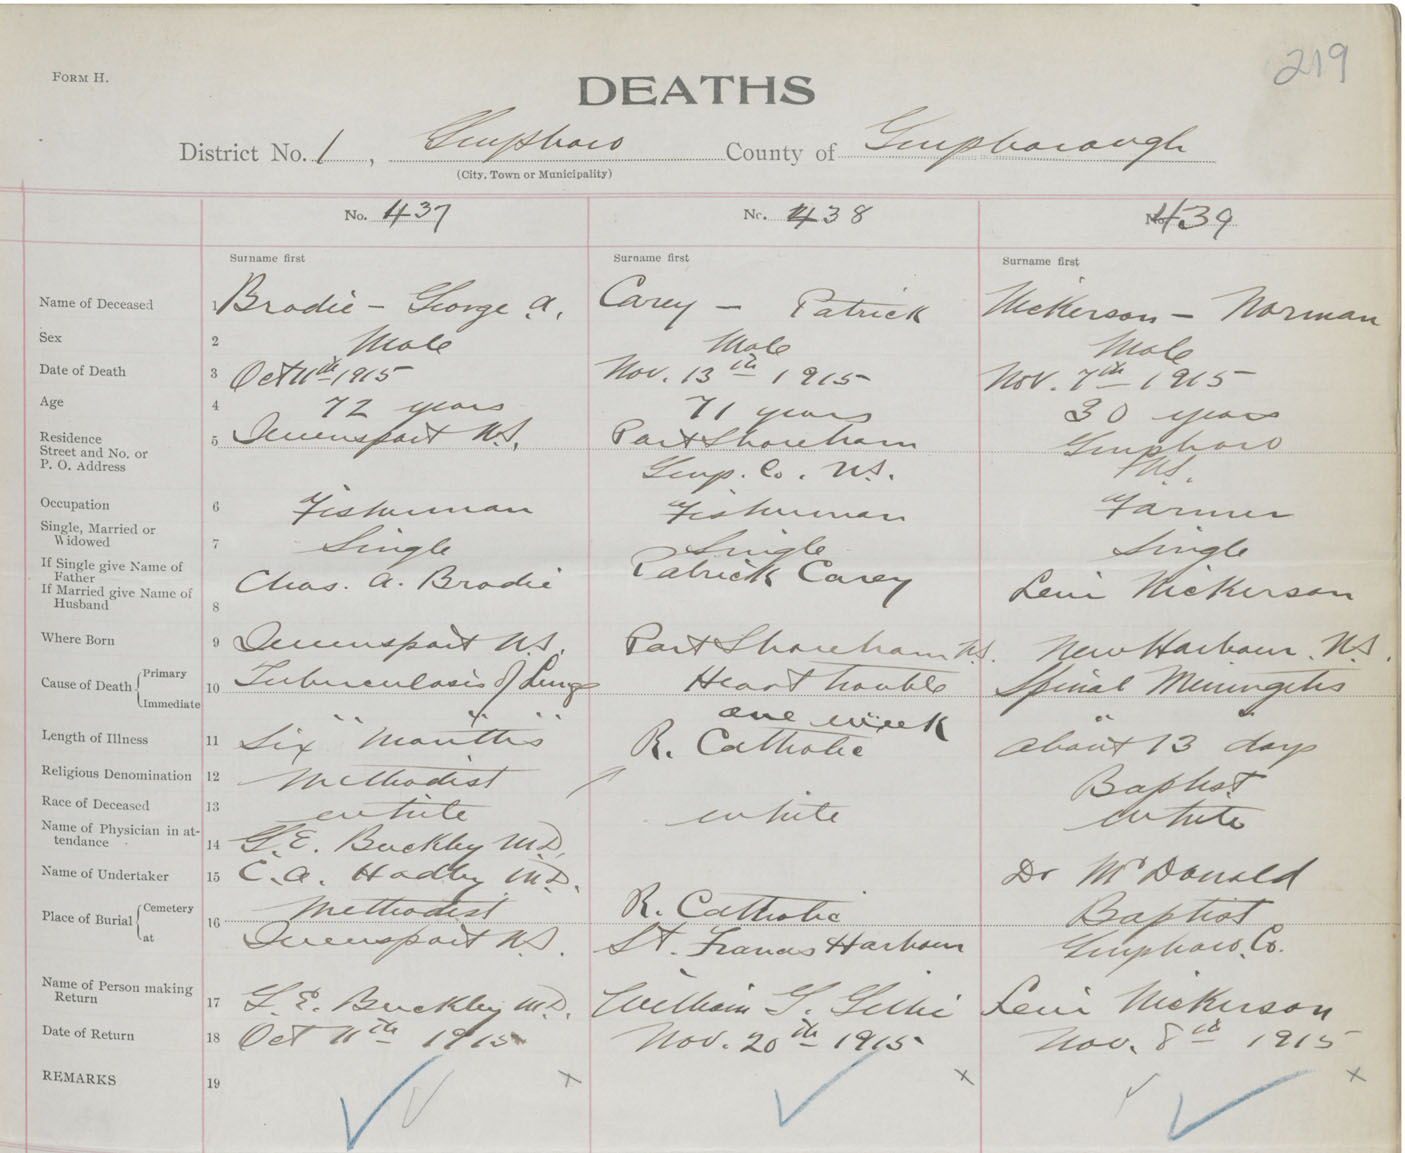 219
FORM H.
DEATHS
District No. 1, Guysboro County of Guysborough
(City, Town or Municipality)
No. 437 No. 438 No. 439
Surname first Surname first Surname first
Name of Deceased 1 Brodie - George A. Carey - Patrick Nickerson - Norman
Sex 2 Male Male Male
Date of Death 3 Oct 11th 1915 Nov. 13th 1915 Nov. 7th 1915
Age 4 72 years 71 years 30 years
Residence Street and No. or P. O. Address 5 Queensport N.S. Port Shoreham Guysboro
Guys. Co. N.S. N.S.
Occupation 6 Fisherman Fisherman Farmer
Single, Married or Widowed 7 Single Single Single
If Single give Name of Father
If Married give Name of Husband 8 Chas. A. Brodie Patrick Carey Levi Nickerson
Where Born 9 Queensport N.S. Port Shoreham N.S. New Harbour. N.S.
Cause of Death { Primary 10 Tuberculosis of Lungs Heart trouble Spinal Miningitis
Immediate " " " " "
one week
Length of Illness 11 Six Months about 13 days
Religious Denomination 12 Methodist R. Catholic Baptist
Race of Deceased 13 white white white
Name of Physician in attendance 14 G. E. Buckley M.D. Dr McDonald
Name of Undertaker 15 C. A. Hadley M.D.
Place of Burial { Cemetery 16 Methodist R. Catholic Baptist
at Queensport N.S. St. Francis Harbour Guysboro. Co.
Name of Person making Return 17 G. E. Buckley M.D. William G. Gillie Levi Nickerson
Date of Return 18 Oct 11th 1915 Nov. 20th 1915 Nov. 8th 1915
REMARKS 19 x x x